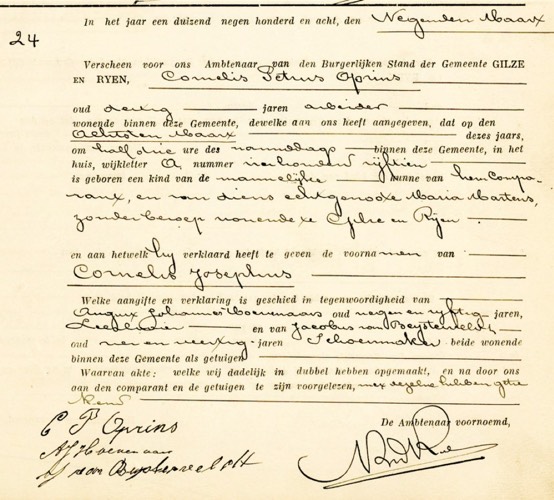 24
In het jaar een duizend negen honderd en acht, den Negenden Maart
Verscheen voor ons Ambtenaar van den Burgerlijken Stand der Gemeente GILZE
EN RYEN, Cornelis Petrus Oprins
oud dertig jaren arbeider
wonende binnen deze Gemeente, dewelke aan ons heeft aangegeven, dat op den
Achtsten Maart dezes jaars,
om half drie ure des namiddags binnen deze Gemeente, in het
huis, wijkletter A nummer vierhonderd vijftien
is geboren een kind van de mannelijke kunne van hem Compa-
rant, en van diens echtgenoote Maria Martens,
zonder beroep wonende te Gilze en Rijen
en aan hetwelk hij verklaard heeft te geven de voornamen van
Cornelis Josephus
Welke aangifte en verklaring is geschied in tegenwoordigheid van
August Johannes Hoevenaars oud negen en vijftig jaren,
en van Jacobus van Beijsterveldt
oud en veertig jaren Schoenmaker beide wonende
binnen deze Gemeente als getuigen
Waarvan akte: welke wij dadelijk in dubbel hebben opgemaakt, en na door ons
aan den comparant en de getuigen te zijn voorgelezen, met dezelve hebben getee
kend
De Ambtenaar voornoemd,
C P Oprins
AJ Hoevenaars
J van Bijsterveldt